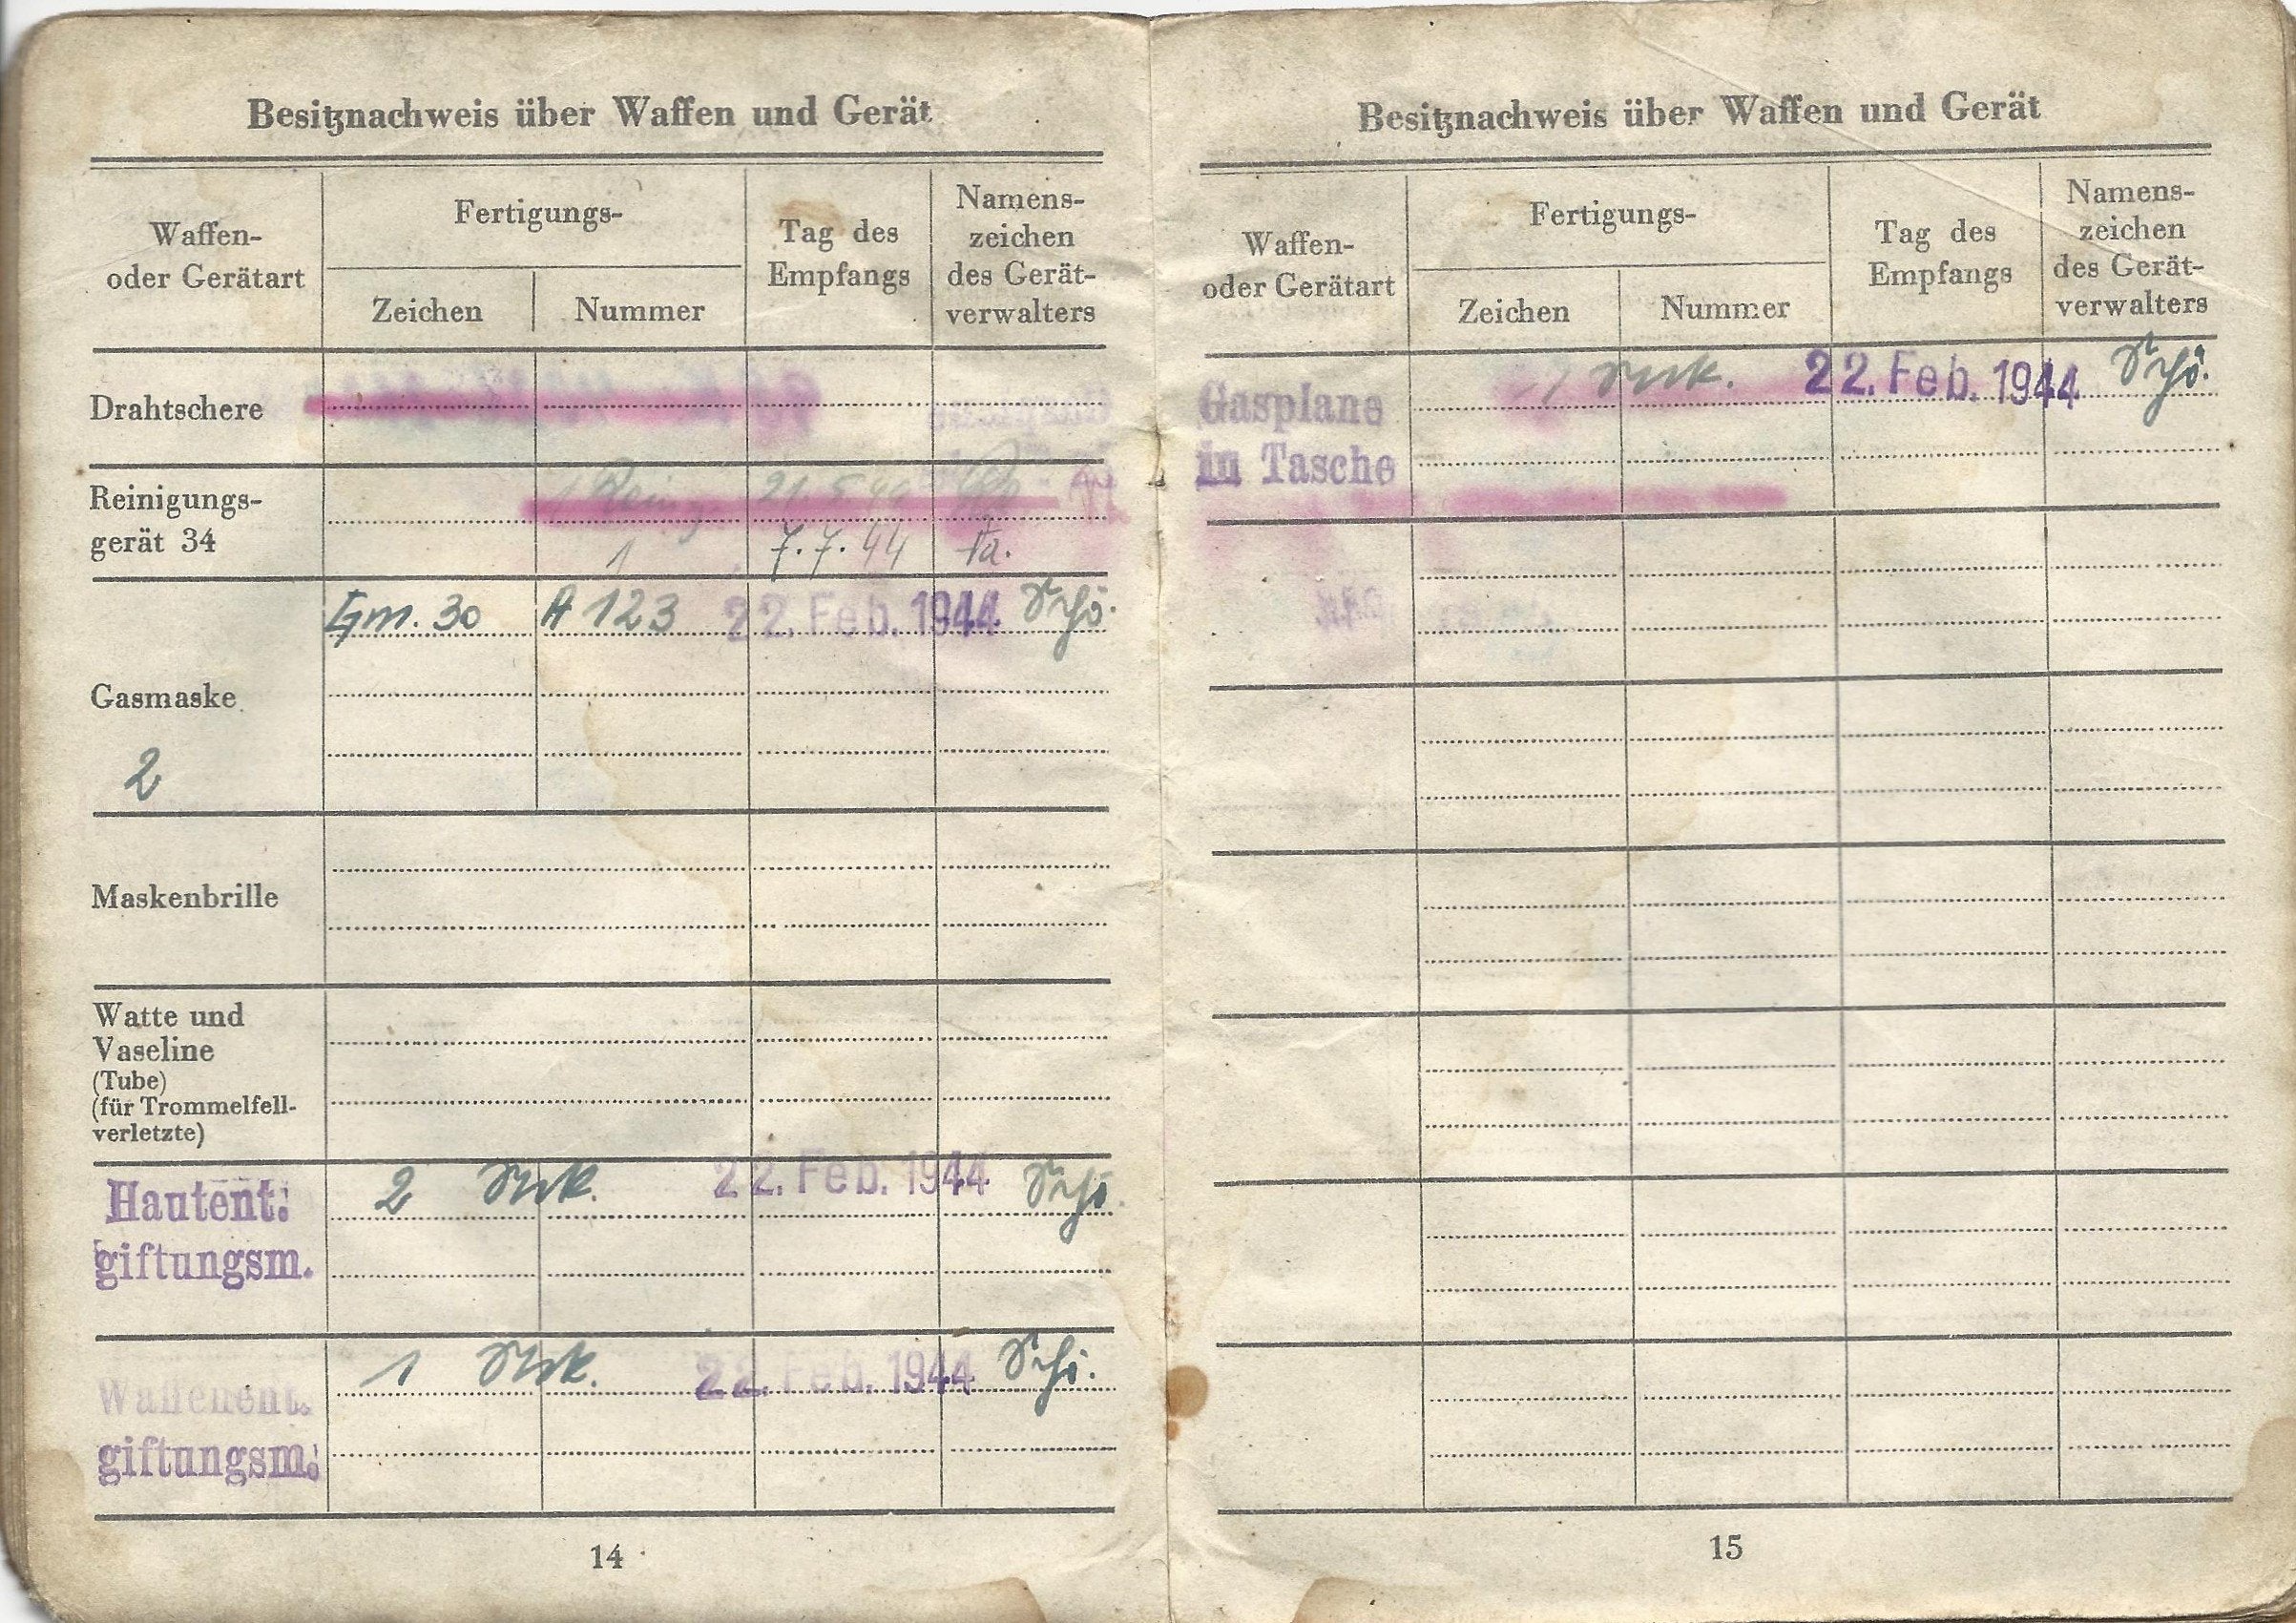 Besitznachweis über Waffen und Gerät
Waffen-
oder Gerätart
Fertigungs-
Zeichen
Nummer
Tag des
Empfangs
Namens-
zeichen
des Gerät-
verwalters
Drahtschere
Reinigungs-
gerät 34
21.5.44
1 7.7.44
Gasmaske
Gm. 30 A 123 22. Feb. 1944 Schö.
2
Maskenbrille
Watte und
Vaseline
(Tube)
(für Trommelfell-
verletzte)
Hautent.
giftungsm.
2 Stck. 22. Feb. 1944 Schö.
Waffenent.
giftungsm.
1 Stck. 22. Feb. 1944 Schö.
14
Besitznachweis über Waffen und Gerät
Waffen-
oder Gerätart
Fertigungs-
Zeichen
Nummer
Tag des
Empfangs
Namens-
zeichen
des Gerät-
verwalters
Gasplane
in Tasche
1 Stck. 22. Feb. 1944 Schö.
15